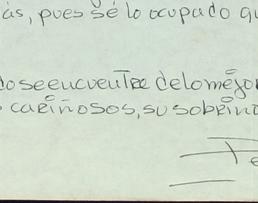 ás, pues sé lo ocupado qu
do se encuentre de lo mejor
cariñosos, su sobrino